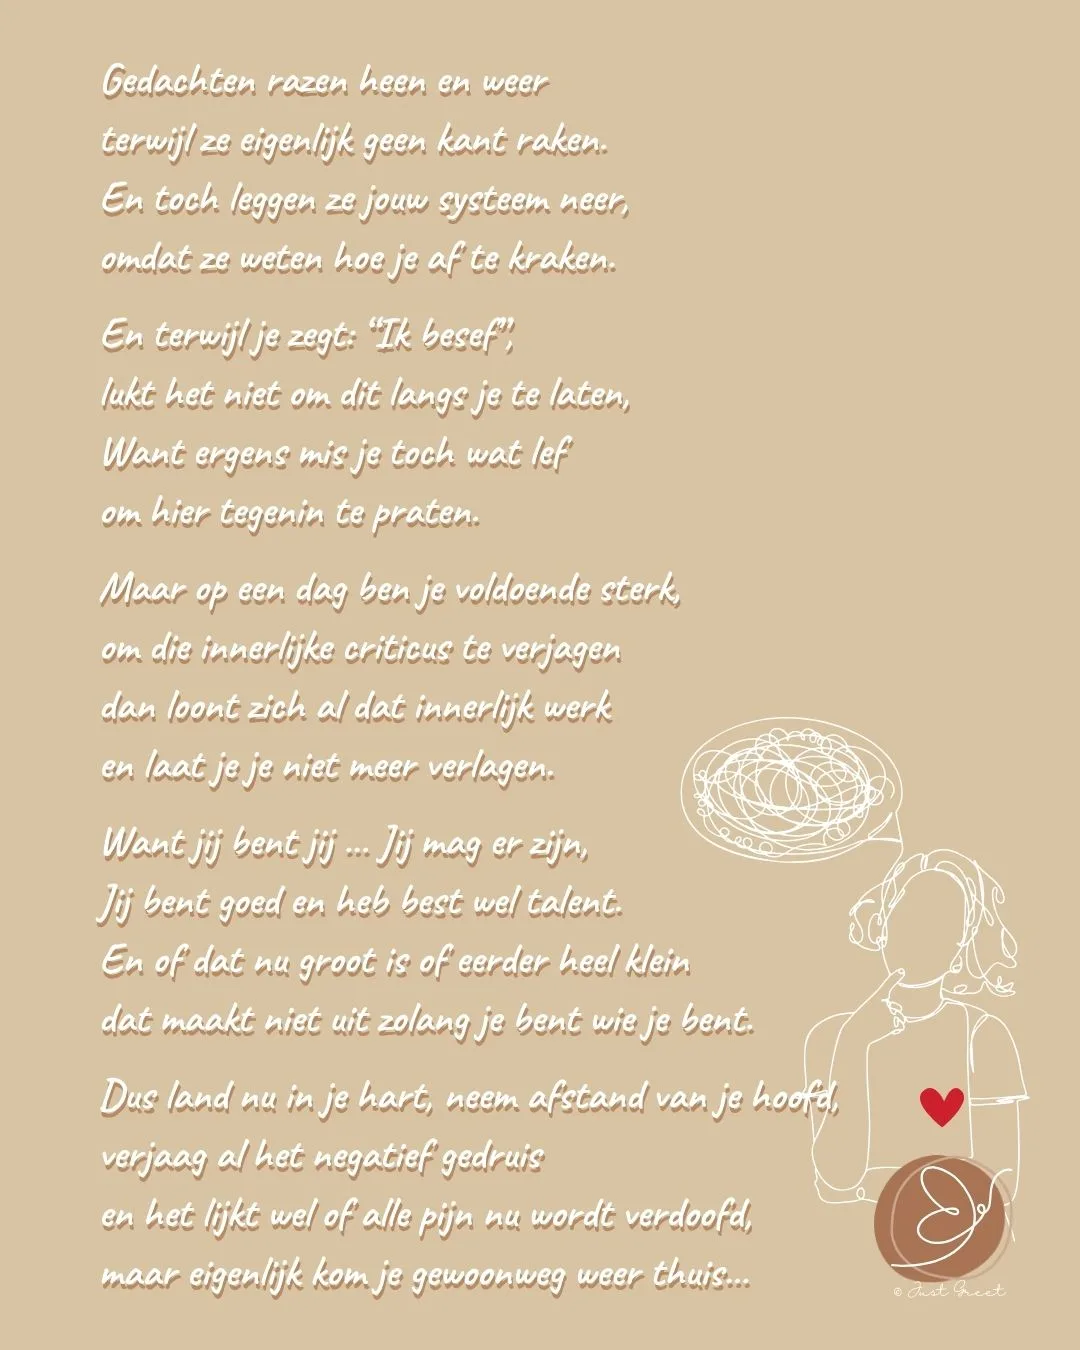 Gedachten razen heen en weer
terwijl ze eigenlijk geen kant raken.
En toch leggen ze jouw systeem neer,
omdat ze weten hoe je af te kraken.
En terwijl je zegt: “Ik besef”,
lukt het niet om dit langs je te laten,
Want ergens mis je toch wat lef
om hier tegenin te praten.
Maar op een dag ben je voldoende sterk,
om die innerlijke criticus te verjagen
dan loont zich al dat innerlijk werk
en laat je je niet meer verlagen.
Want jij bent jij ... Jij mag er zijn,
Jij bent goed en heb best wel talent.
En of dat nu groot is of eerder heel klein
dat maakt niet uit zolang je bent wie je bent.
Dus land nu in je hart, neem afstand van je hoofd,
verjaag al het negatief gedruis
en het lijkt wel of alle pijn nu wordt verdoofd,
maar eigenlijk kom je gewoonweg weer thuis...
© Just Greet